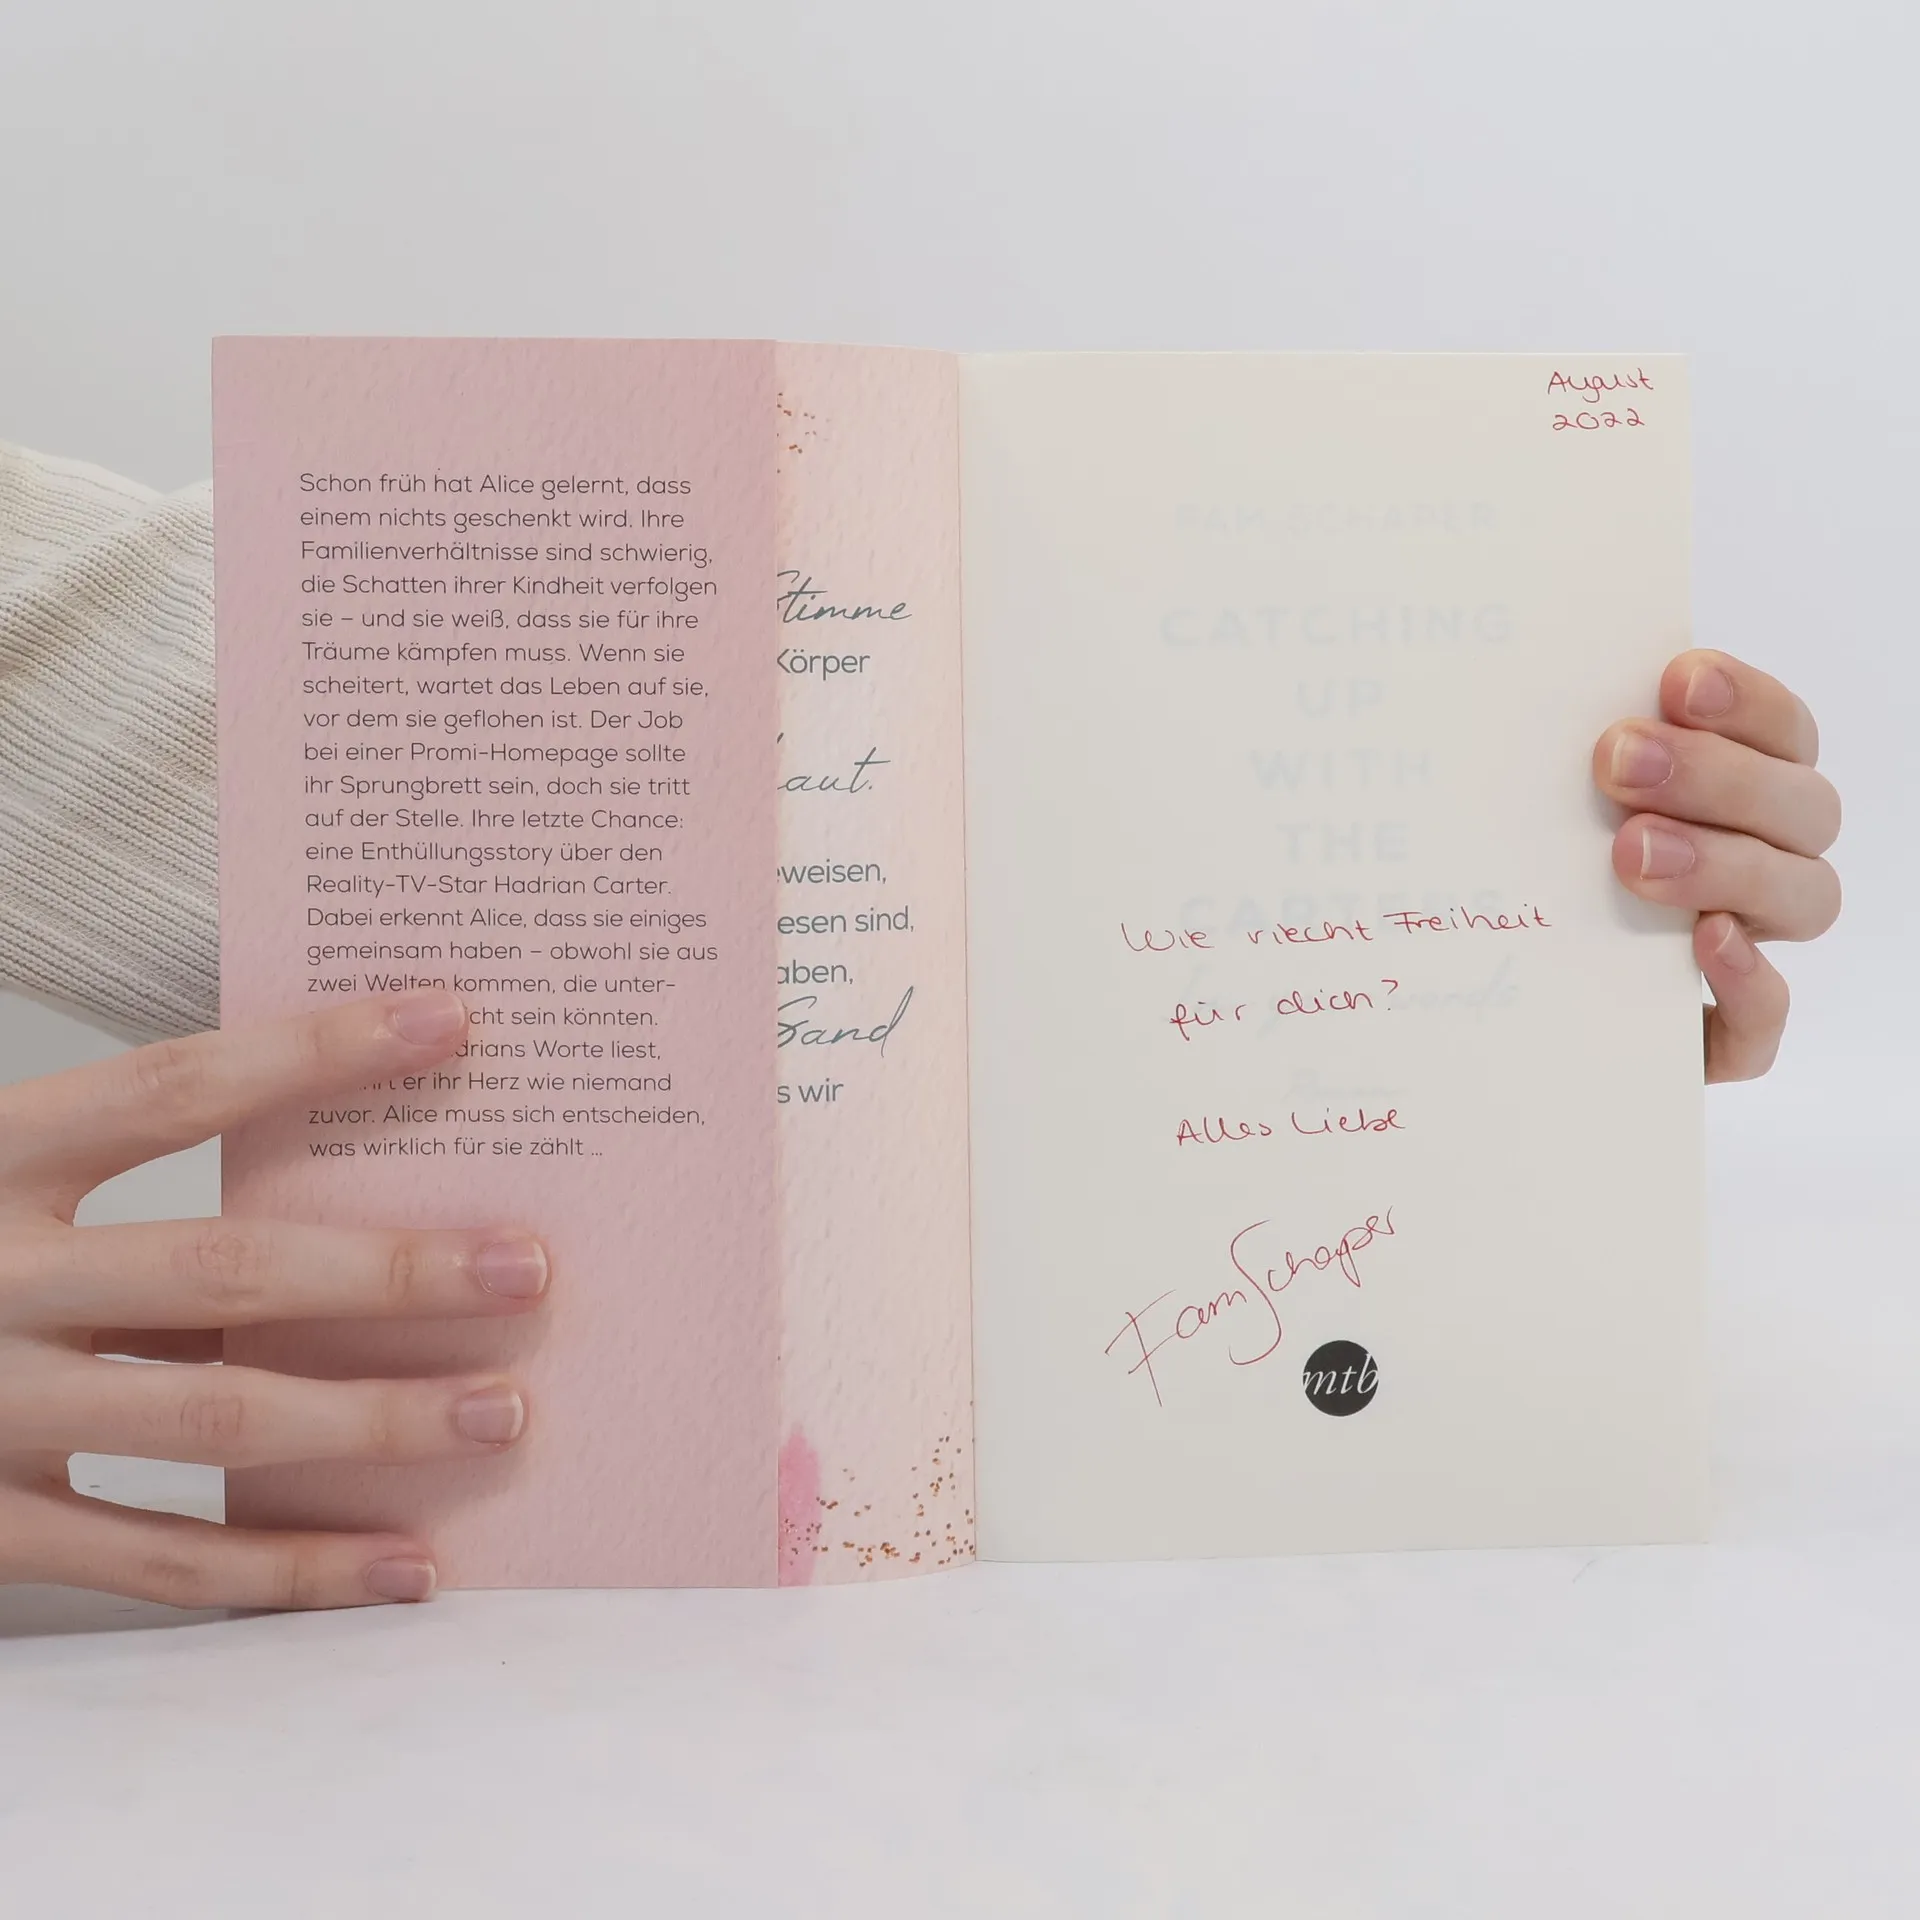 Schon früh hat Alice gelernt, dass
einem nichts geschenkt wird. Ihre
Familienverhältnisse sind schwierig,
die Schatten ihrer Kindheit verfolgen
sie – und sie weiß, dass sie für ihre
Träume kämpfen muss. Wenn sie
scheitert, wartet das Leben auf sie,
vor dem sie geflohen ist. Der Job
bei einer Promi-Homepage sollte
ihr Sprungbrett sein, doch sie tritt
auf der Stelle. Ihre letzte Chance:
eine Enthüllungsstory über den
Reality-TV-Star Hadrian Carter.
Dabei erkennt Alice, dass sie einiges
gemeinsam haben – obwohl sie aus
zwei Welten kommen, die unter-
cht sein könnten.
drians Worte liest,
er ihr Herz wie niemand
zuvor. Alice muss sich entscheiden,
was wirklich für sie zählt ...
Stimme
Körper
aut.
weisen,
esen sind,
aben,
Sand
s wir
August
2022
FAM SCHAPER
CATCHING
UP
WITH
THE
CARTERS
Wie riecht Freiheit
für dich?
Alles Liebe
Fam Schaper
mtb